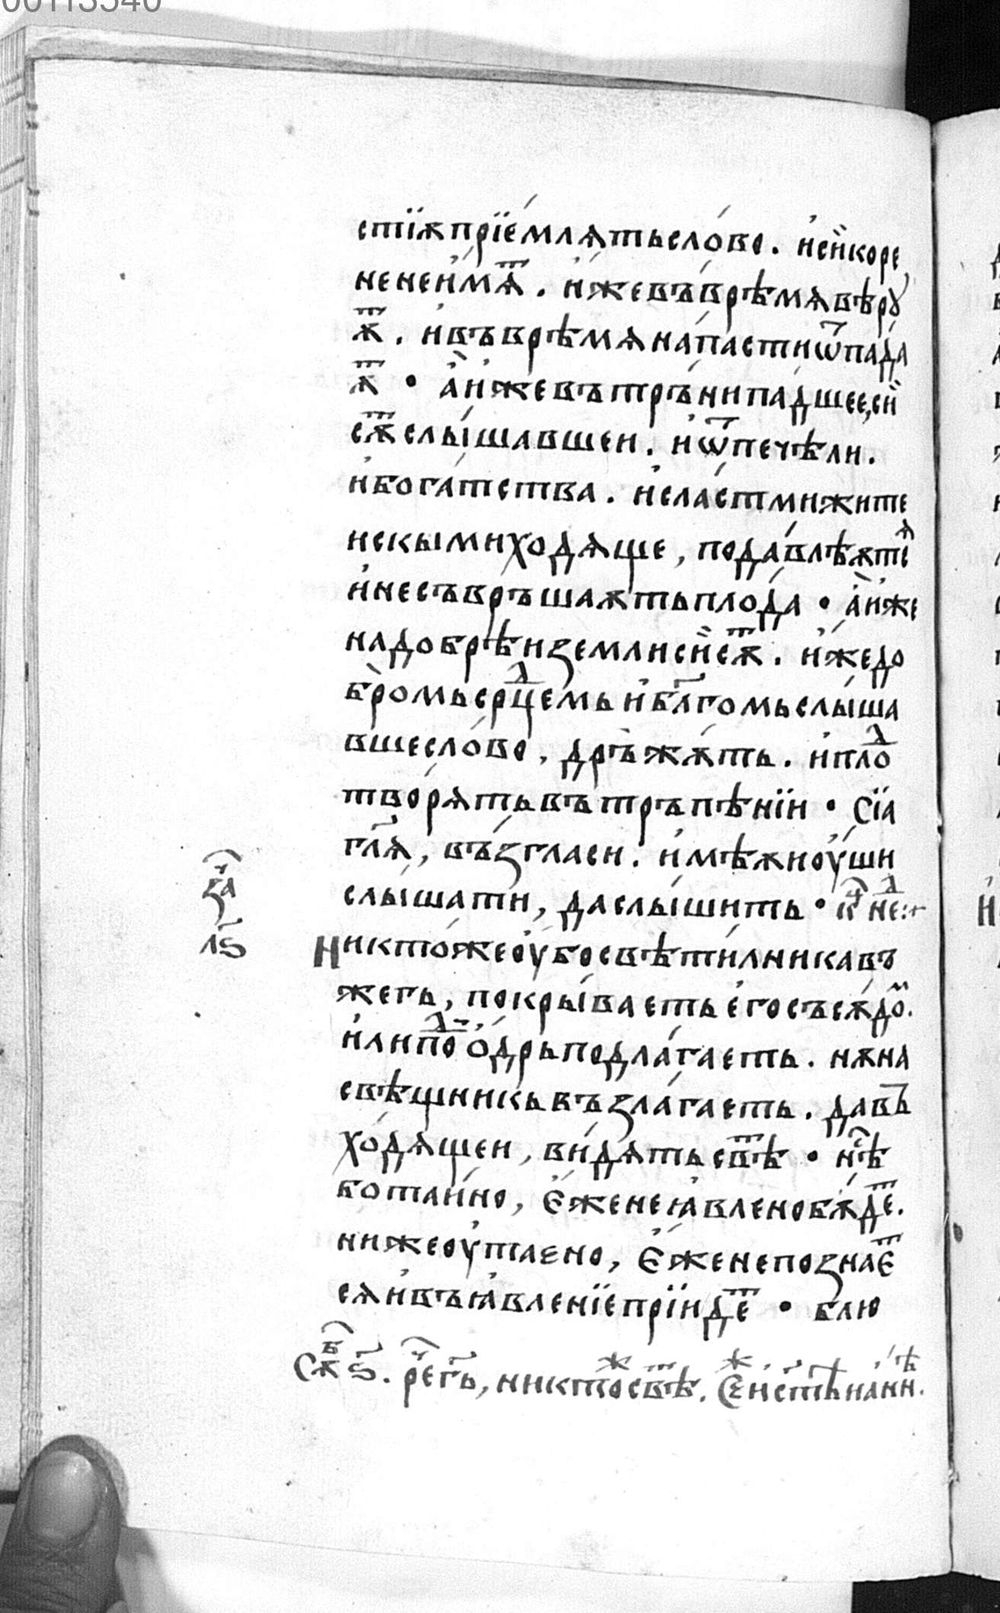 00113540
стїѫ прїе́млѧть сло́во. и҆сїи̏ коре
не не и҆мѫⷮ. и҆же въ врѣ́мѧ вѣрꙋ́
ѫⷮ. и҆ въ врѣ́мѧ напа́сти ѿпа́да
ѫⷮ • а҆̀ и҆же въ трь́нїи падшее, сїи̏
сѫⷮ слы́шавшеи. и҆ ѿ печѣли.
и҆ бога́тства. и҆ сла́стми жите
искыми ходѧще, пода́влѣѫтьсѧ
и҆ не съвръша́ѫть плода̀ • а҆̀ и҆же
на до́брѣи земли сїи̏ сѫⷮ. и҆же до
бро́мь срⷣцемь и҆ бл҃го́мь слы́ша
вше сло́во, дръжѫть. и҆ плоⷣ
тво́рѧть въ тръпѣ́нїи • Сїа
гл҃ѧ, въ́згласи. и҆мѣѫи ѹ҆́ши
слы́шати, да слы́шить • к҃ неⷣ:+
Никто́же ѹ҆́бо свѣти́лника въ
жегь, покрыва́еть е҆го̀ съсѫ́доⷨ.
и҆ли поⷣ ѻ҆дрь подлага́еть. нѫ на
свѣ́щникь възлага́еть. да въ
ходѧщеи, ви́дѧть свѣⷮ • нѣⷭ
бо та́ино, є҆же не ꙗ҆вле́но бѫ́деⷮ.
ниже ѹ҆таено, є҆же не позна́еⷮ
сѧ и҆ въ ꙗ҆вле́нїе прїи́деⷮ • блю
заⷱ
л҃ѕ
Сѫⷠ ѕ҃. реⷱ гь, никтоⷤ свѣⷮ.